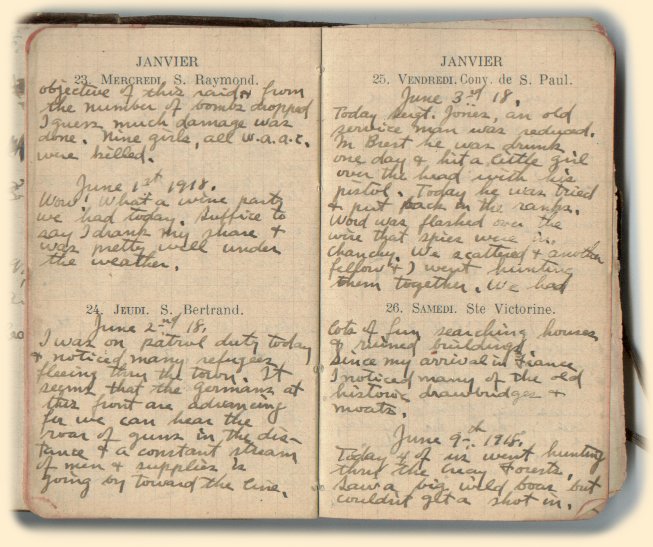 JANVIER
23. MERCREDI. S. Raymond.
objective of this raid & from
the number of bombs dropped
I guess much damage was
done. Nine girls, all W.A.A.C.
were killed.
June 1st 1918.
Wow! What a wine party
we had today. Suffice to
say I drank my share &
was pretty well under
the weather.
24. JEUDI. S. Bertrand.
June 2nd 18.
I was on patrol duty today
& noticed many refugees
fleeing thru the town. It
seems that the Germans at
this front are advancing
for we can hear the
roar of guns in the dis-
tance & a constant stream
of men & supplies is
going by toward the line.
JANVIER
25. VENDREDI. Conv. de S. Paul.
June 3rd 18.
Today Sergt. Jones, an old
service man was reduced.
In Brest he was drunk
one day & hit a little girl
over the head with his
pistol. Today he was tried
& put back in the ranks.
Word was flashed over the
wire that spies were in
We scattered & another
fellow & I went hunting
them together. We had
26. SAMEDI. Ste Victorine.
lots of fun searching houses
& ruined buildings.
Since my arrival in France
I noticed many of the old
historic drawbridges &
moats.
June 9th 1918.
Today 4 of us went hunting
thru the forests.
Saw a big wild boar but
couldn't get a shot in.